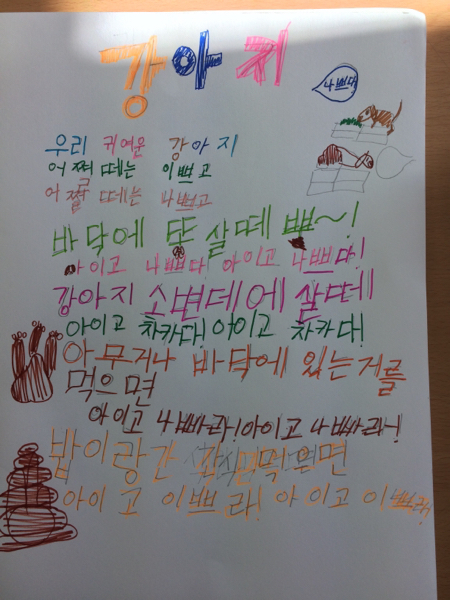 강아지
나쁘다
우리 귀여운 강아지
어쩌 떼는 이쁘고
어쩔 떼는 나쁘고
바닥에 또 살떼 뿌~!
아이고 나쁘다! 아이고 나쁘다!
강아지 소변데에 살떼
아이고 차카다! 아이고 차카다!
아무거나 바닥에 있는거를
먹으면
아이고 나빠라~! 아이고 나빠라~!
밥이랑 간식만 먹으면
아이고 이쁘라! 아이고 이쁘라!